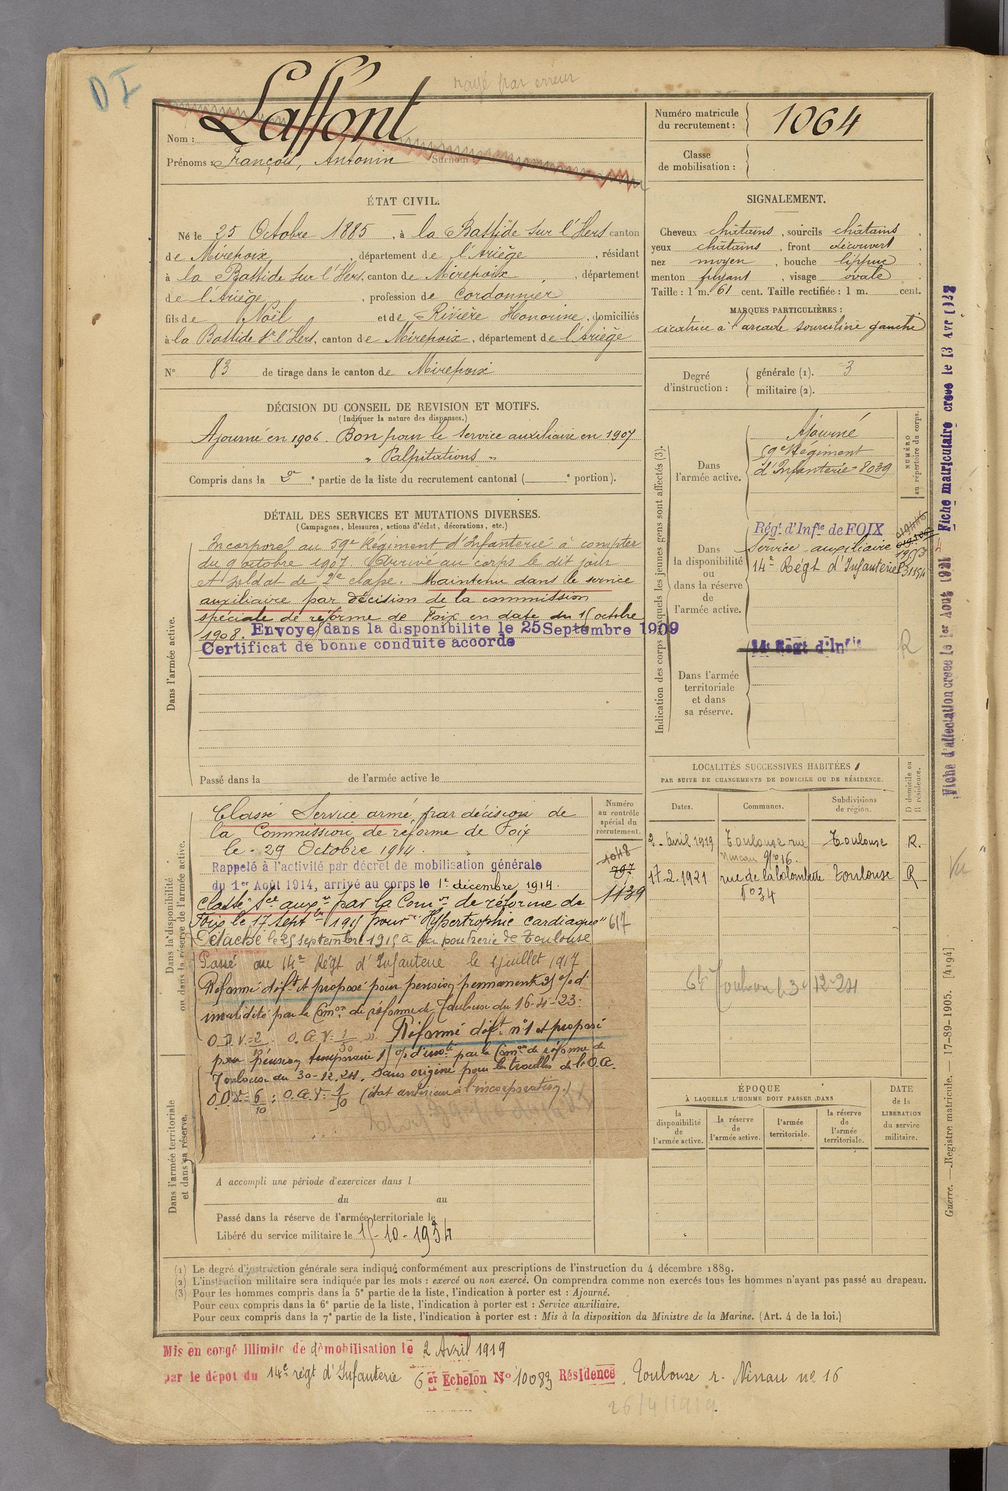 D I
rayé par erreur
Laffont
Nom :
Prénoms : François, Antonin Surnom
Numéro matricule du recrutement : 1064
Classe de mobilisation :
ÉTAT CIVIL.
Né le 25 Octobre 1885, à la Bastide sur l'Hers canton
de Mirepoix, département de l'Ariège, résidant
à la Bastide sur l'Hers, canton de Mirepoix, département
de l'Ariège, profession de Cordonnier
fils de Noël et de Rivière Honorine, domiciliés
à la Bastide s/r l'Hers, canton de Mirepoix, département de l'Ariège
N° 83 de tirage dans le canton de Mirepoix
SIGNALEMENT.
Cheveux châtains, sourcils châtains,
yeux châtains, front découvert,
nez moyen, bouche lippue,
menton fuyant, visage ovale
Taille : 1 m. 61 cent. Taille rectifiée : 1 m. cent.
MARQUES PARTICULIÈRES :
cicatrice à l'arcade sourcilière gauche
Degré d'instruction :
générale (1). 3
militaire (2).
DÉCISION DU CONSEIL DE REVISION ET MOTIFS.
(Indiquer la nature des dispenses.)
Ajourné en 1906. Bon pour le service auxiliaire en 1907
" Palpitations "
Compris dans la 2e partie de la liste du recrutement cantonal ( e portion).
DÉTAIL DES SERVICES ET MUTATIONS DIVERSES.
(Campagnes, blessures, actions d'éclat, décorations, etc.)
Dans l'armée active.
Incorporé au 59e Régiment d'Infanterie à compter
du 9 octobre 1907. Arrivé au corps le dit jour
et soldat de 2e classe. Maintenu dans le service
auxiliaire par décision de la commission
spéciale de réforme de Foix en date du 15 octobre
1908. Envoyé dans la disponibilité le 25 Septembre 1909
Certificat de bonne conduite accordé
Passé dans la de l'armée active le
Indication des corps auxquels les jeunes gens sont affectés (3).
NUMÉRO au répertoire du corps.
Dans l'armée active.
Ajourné
59e Régiment
d'Infanterie 8039
Dans la disponibilité ou dans la réserve de l'armée active.
Régt d'Infie de FOIX
service auxiliaire
14e Régt d'Infanterie
14e Régt d'Infie
R
Dans l'armée territoriale et dans sa réserve.
Dans la disponibilité ou dans la réserve de l'armée active.
Numéro au contrôle spécial du recrutement.
Classé Service armé, par décision de
la Commission de réforme de Foix
le 29 Octobre 1914.
Rappelé à l'activité par décret de mobilisation générale
du 1er Août 1914, arrivé au corps le 1er décembre 1914.
Classé Sce auxre par la Comon de réforme de
Foix le 17 Septbre 1915 pour "Hypertrophie cardiaque"
Détaché le 25 septembre 1915 à la poudrerie de Toulouse
Passé au 14e Régt d'Infanterie le 1 juillet 1917
1048
797
1139
617
Réformé déft et proposé pour pension permanente 35 % d'
invalidité par la Comon de réforme de Toulouse du 16-4-23.
O.D.V= 2/10 : O.G.V= 1/50 " Réformé déft n°1 et proposé
pour Pension temporaire 15 % d'invté par la Comon de réforme de
Toulouse du 30-12-24, sans origine pour les troubles de l'O.G.
O.D.V= 6/10 : O.G.V= 1/50 (état antérieur à l'incorporation.)
Dans l'armée territoriale et dans sa réserve.
A accompli une période d'exercices dans l
du au
Passé dans la réserve de l'armée territoriale le
Libéré du service militaire le 15-10-1934
LOCALITÉS SUCCESSIVES HABITÉES
PAR SUITE DE CHANGEMENTS DE DOMICILE OU DE RÉSIDENCE.
Dates. Communes. Subdivisions de région. D domicile ou R résidence.
2 avril 1919 Toulouse rue Ninau N° 16. Toulouse R.
17-2-1921 rue de la Colombette N° 34 Toulouse R
Vu
ÉPOQUE
À LAQUELLE L'HOMME DOIT PASSER DANS
la disponibilité de l'armée active.
la réserve de l'armée active.
l'armée territoriale.
la réserve de l'armée territoriale.
DATE de la LIBÉRATION du service militaire.
(1) Le degré d'instruction générale sera indiqué conformément aux prescriptions de l'instruction du 4 décembre 1889.
(2) L'instruction militaire sera indiquée par les mots : exercé ou non exercé. On comprendra comme non exercés tous les hommes n'ayant pas passé au drapeau.
(3) Pour les hommes compris dans la 5e partie de la liste, l'indication à porter est : Ajourné.
Pour ceux compris dans la 6e partie de la liste, l'indication à porter est : Service auxiliaire.
Pour ceux compris dans la 7e partie de la liste, l'indication à porter est : Mis à la disposition du Ministre de la Marine. (Art. 4 de la loi.)
Mis en congé illimité de démobilisation le 2 Avril 1919
par le dépôt du 14e régt d'Infanterie 6er Echelon N° 10083 Résidence Toulouse r. Ninau n° 16
26/4/1919
Fiche d'affectation créée le 1er Août 1921 - Fiche matriculaire créée le 13 Avr 1922
Guerre. — Registre matricule. — 17-89-1905. [4194]